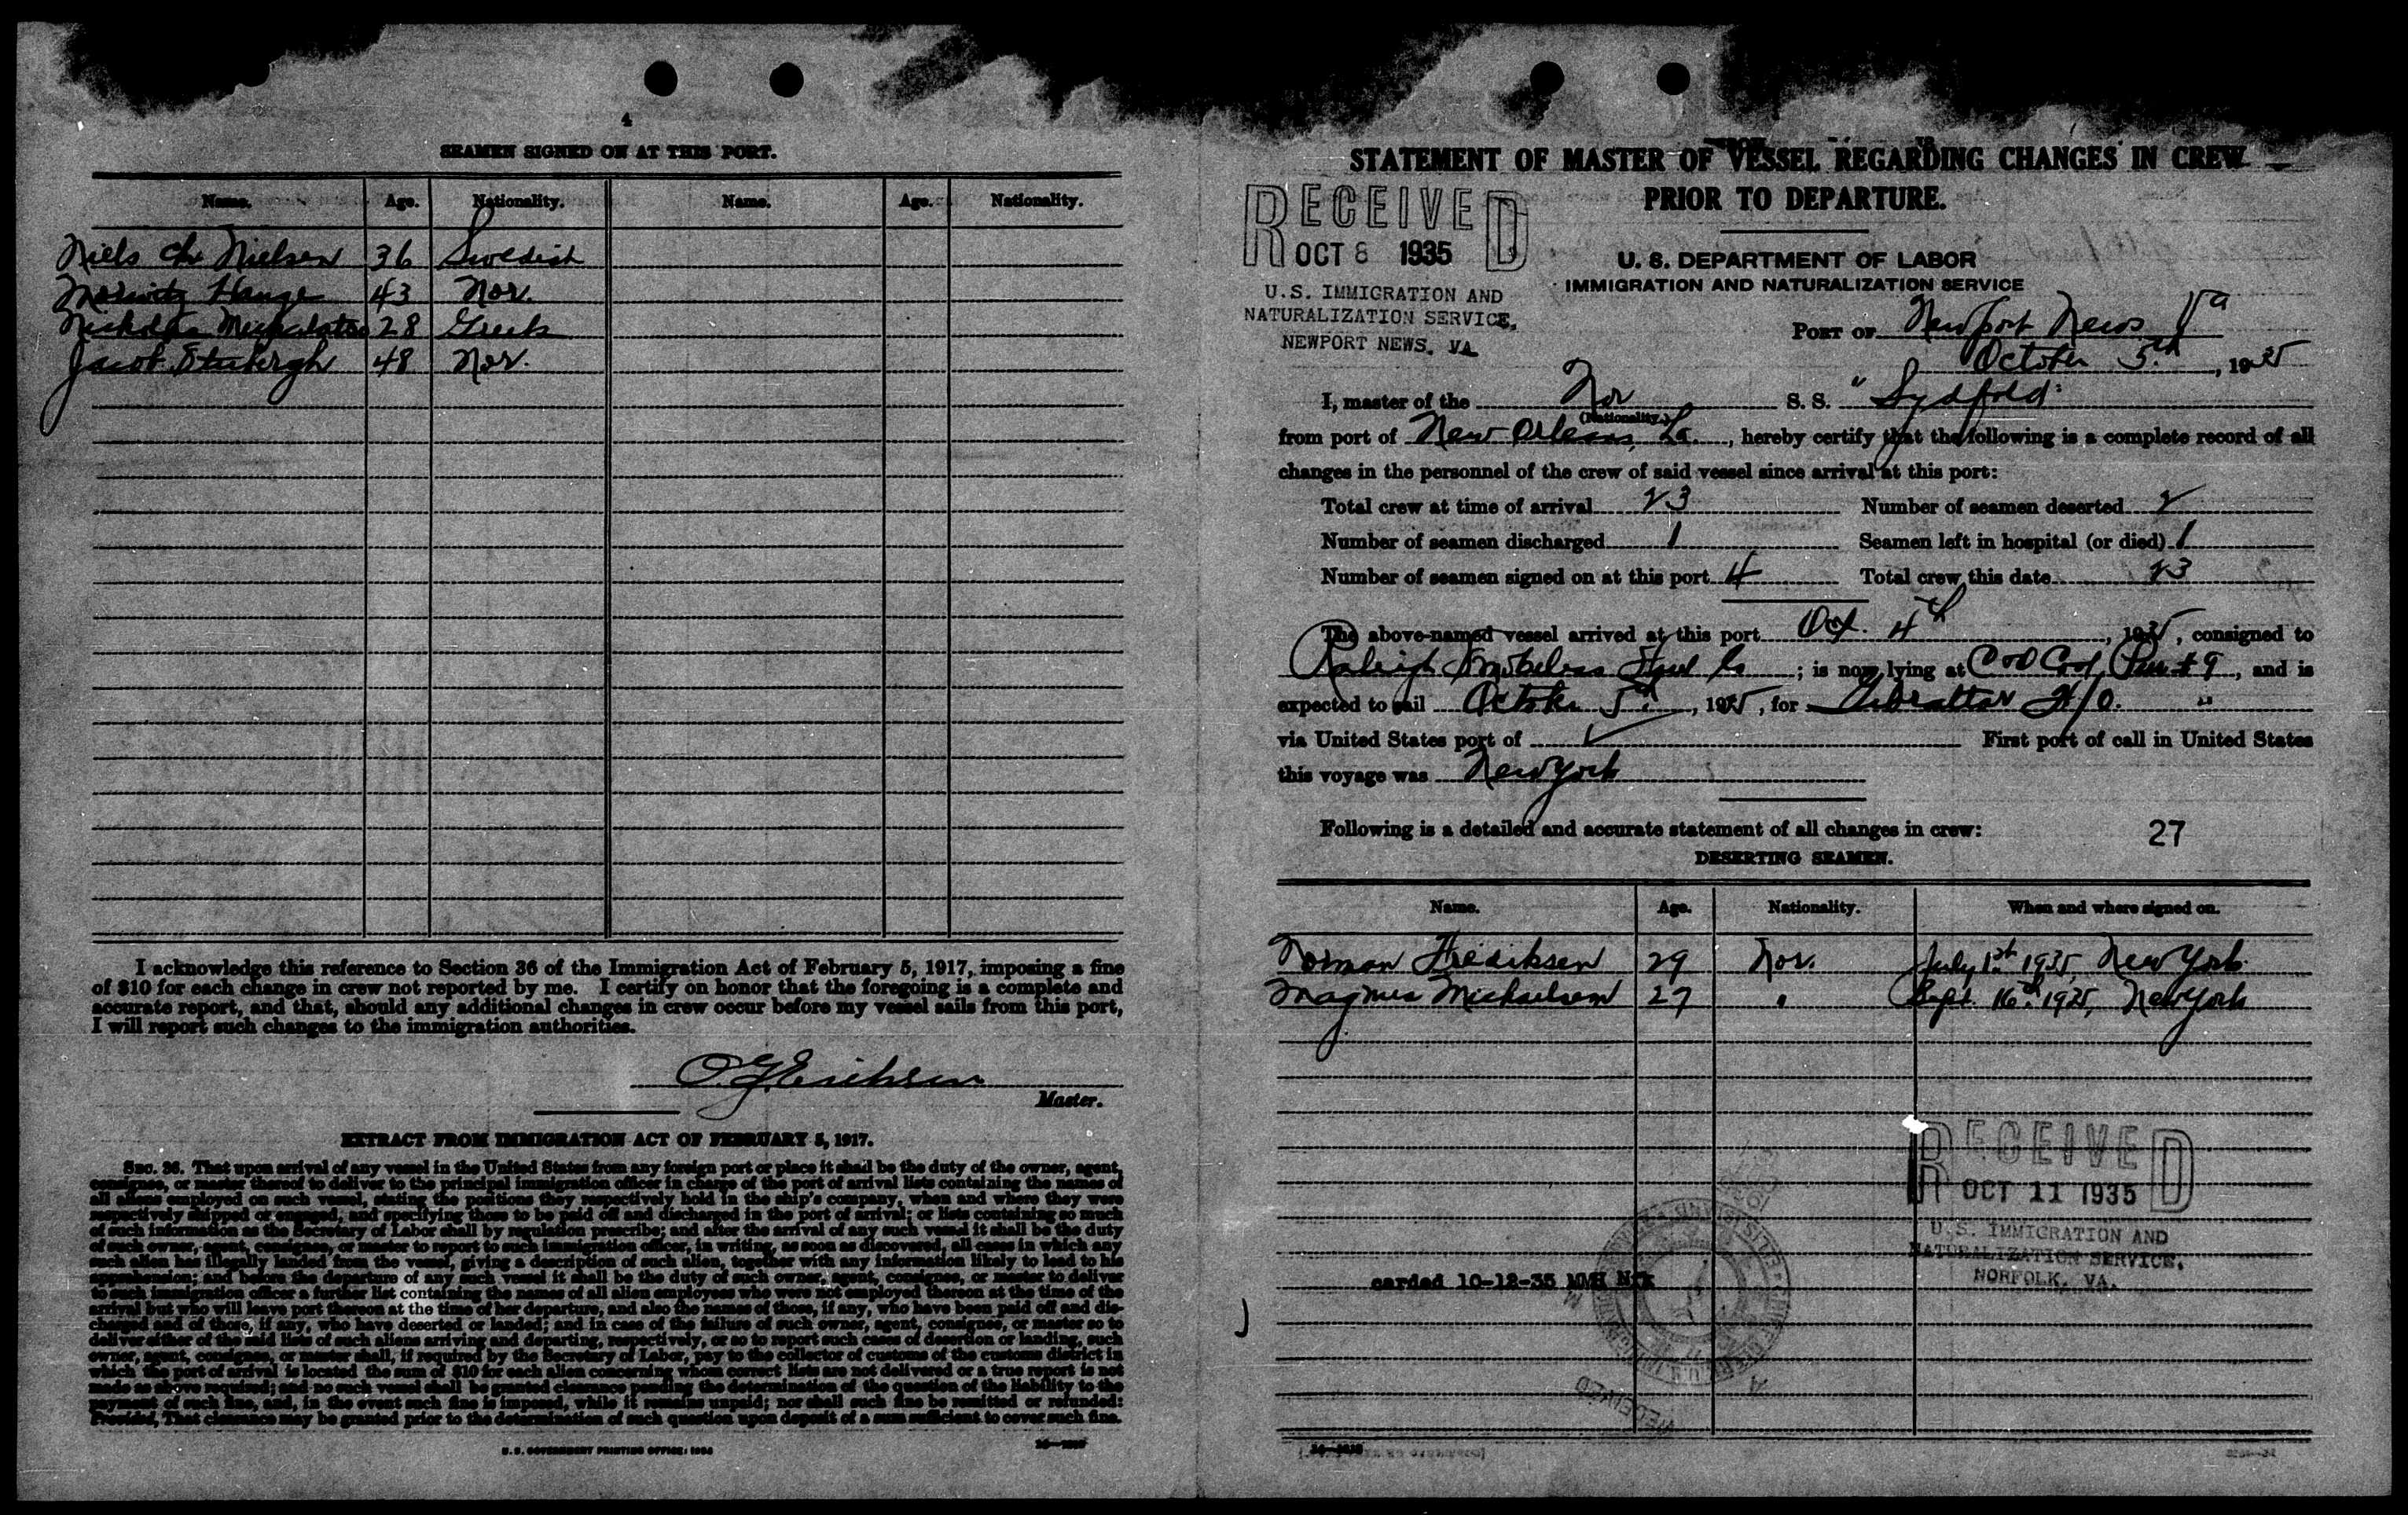 4
SEAMEN SIGNED ON AT THIS PORT.
Name. Age. Nationality. Name. Age. Nationality.
Niels Chr Nielsen 36 Swedish
Hauge 43 Nor.
Nicholas 28 Greek
Jacob 48 Nor.
I acknowledge this reference to Section 36 of the Immigration Act of February 5, 1917, imposing a fine
of $10 for each change in crew not reported by me. I certify on honor that the foregoing is a complete and
accurate report, and that, should any additional changes in crew occur before my vessel sails from this port,
I will report such changes to the immigration authorities.
O. G. Erichsen
Master.
EXTRACT FROM IMMIGRATION ACT OF FEBRUARY 5, 1917.
SEC. 36. That upon arrival of any vessel in the United States from any foreign port or place it shall be the duty of the owner, agent,
consignee, or master thereof to deliver to the principal immigration officer in charge of the port of arrival lists containing the names of
all aliens employed on such vessel, stating the positions they respectively hold in the ship's company, when and where they were
respectively shipped or engaged, and specifying those to be paid off and discharged in the port of arrival; or lists containing so much
of such information as the Secretary of Labor shall by regulation prescribe; and after the arrival of any such vessel it shall be the duty
of such owner, agent, consignee, or master to report to such immigration officer, in writing, as soon as discovered, all cases in which any
such alien has illegally landed from the vessel, giving a description of such alien, together with any information likely to lead to his
apprehension; and before the departure of any such vessel it shall be the duty of such owner, agent, consignee, or master to deliver
to such immigration officer a further list containing the names of all alien employees who were not employed thereon at the time of the
arrival but who will leave port thereon at the time of her departure, and also the names of those, if any, who have been paid off and dis-
charged and of those, if any, who have deserted or landed; and in case of the failure of such owner, agent, consignee, or master so to
deliver either of the said lists of such aliens arriving and departing, respectively, or so to report such cases of desertion or landing, such
owner, agent, consignee, or master shall, if required by the Secretary of Labor, pay to the collector of customs of the customs district in
which the port of arrival is located the sum of $10 for each alien concerning whom correct lists are not delivered or a true report is not
made as above required; and no such vessel shall be granted clearance pending the determination of the question of the liability to the
payment of such fine, and, in the event such fine is imposed, while it remains unpaid; nor shall such fine be remitted or refunded:
Provided, That clearance may be granted prior to the determination of such question upon deposit of a sum sufficient to cover such fine.
U.S. GOVERNMENT PRINTING OFFICE: 1934
STATEMENT OF MASTER OF VESSEL REGARDING CHANGES IN CREW
PRIOR TO DEPARTURE.
RECEIVED
OCT 8 1935
U.S. IMMIGRATION AND
NATURALIZATION SERVICE,
NEWPORT NEWS, VA
U. S. DEPARTMENT OF LABOR
IMMIGRATION AND NATURALIZATION SERVICE
PORT OF Newport News Va
October 5th, 1935
I, master of the Nor S. S. "Sydfold"
(Nationality.)
from port of New Orleans, La., hereby certify that the following is a complete record of all
changes in the personnel of the crew of said vessel since arrival at this port:
Total crew at time of arrival 23 Number of seamen deserted 2
Number of seamen discharged 1 Seamen left in hospital (or died) 1
Number of seamen signed on at this port 4 Total crew this date 23
The above-named vessel arrived at this port Oct. 4th, 1935, consigned to
Raleigh Smokeless Fuel Co; is now lying at C&O Coal Pier #9, and is
expected to sail October 5th, 1935, for Gibraltar F/O.
via United States port of First port of call in United States
this voyage was New York
Following is a detailed and accurate statement of all changes in crew: 27
DESERTING SEAMEN.
Name. Age. Nationality. When and where signed on.
Norman Fredriksen 29 Nor. July 1st 1935, New York
Magnus Michaelsen 27 " Sept. 16th 1935, New York
RECEIVED
OCT 11 1935
U.S. IMMIGRATION AND
NATURALIZATION SERVICE,
NORFOLK, VA.
carded 10-12-35 MMH Nfk
RECEIVED